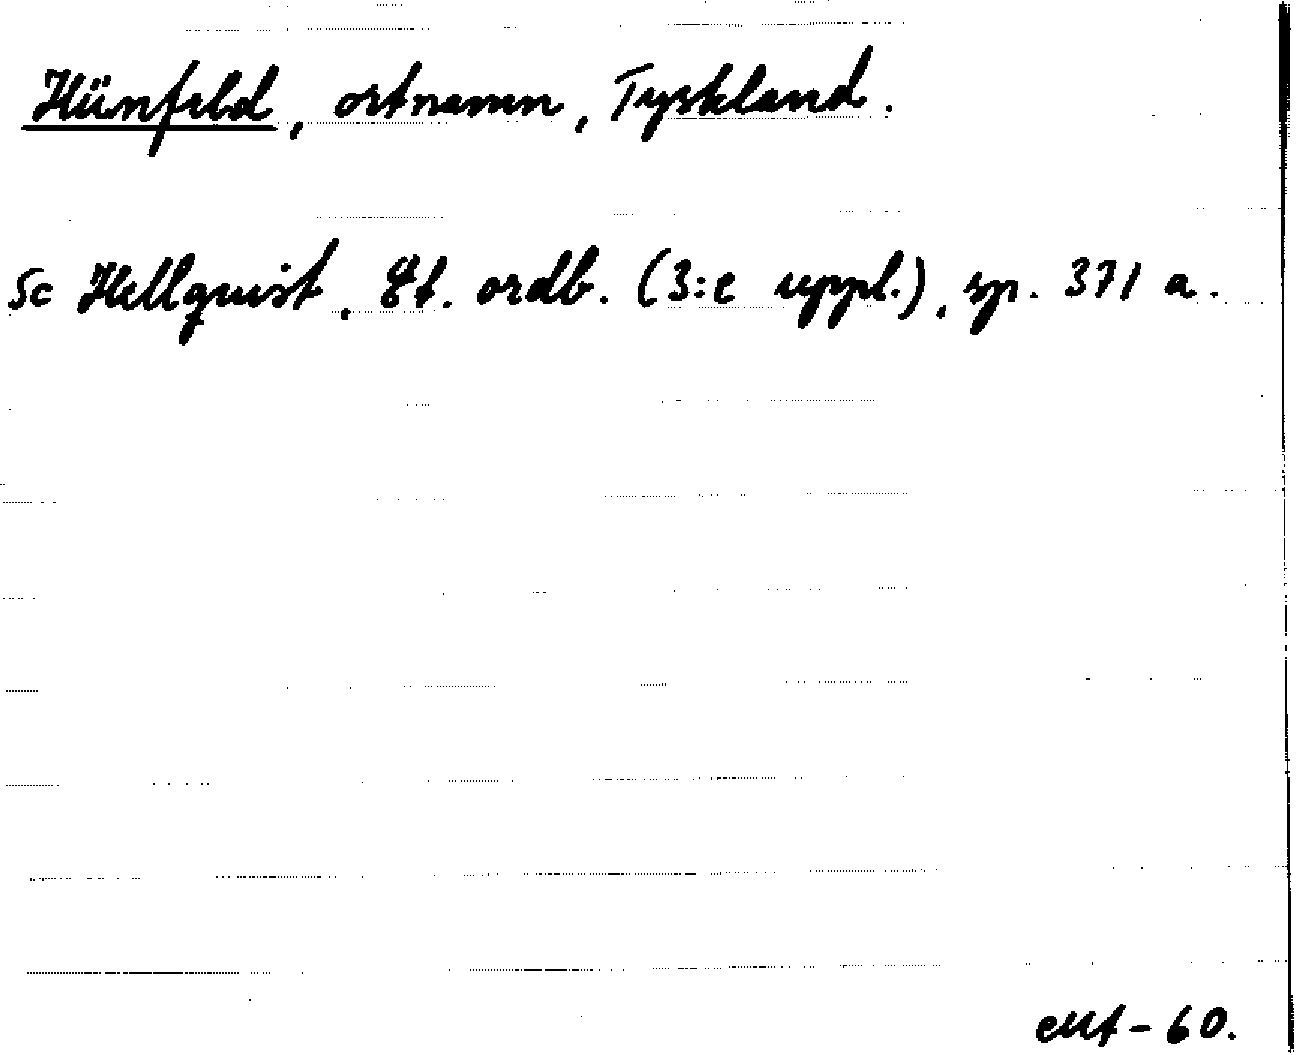 Hünfeld, ortnamn, Tyskland.
Se Hellquist, Et. ordb. (3:e uppl.), sp. 371 a.
-60.